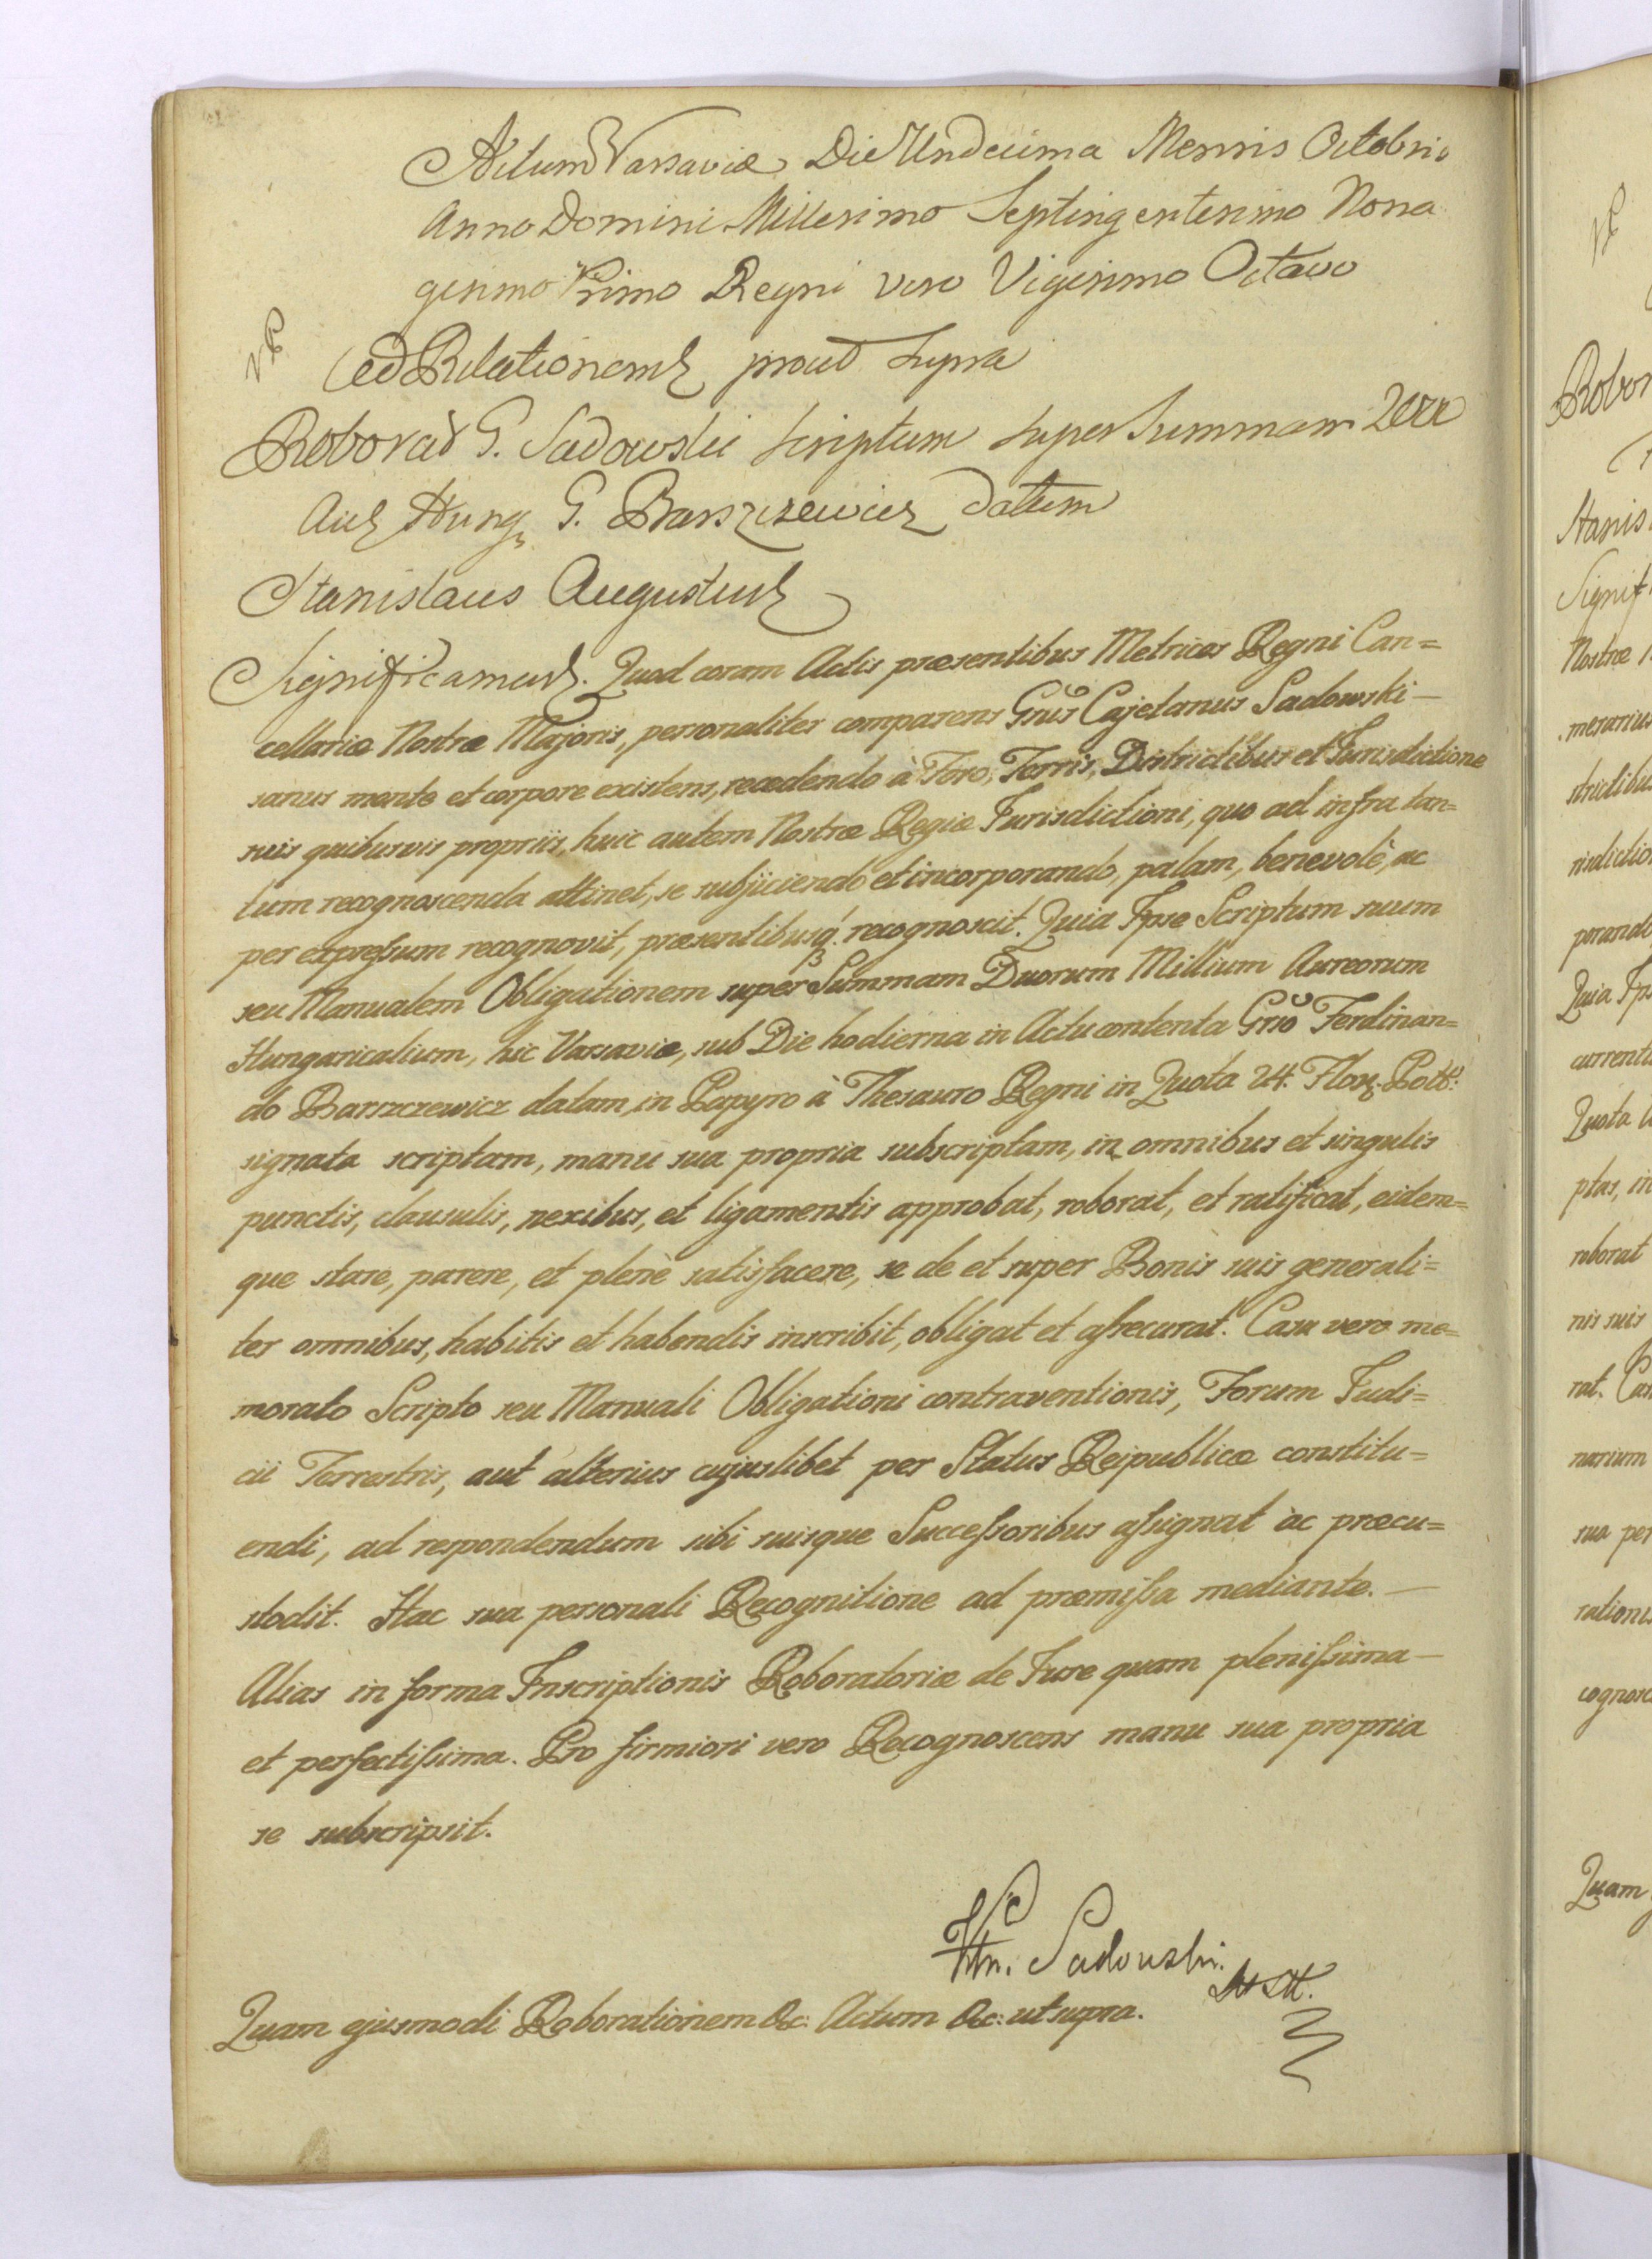 Actum Varsaviæ Die Undecima Mensis Octobris
Anno Domini Millesimo Septingentesimo Nona
gesimo Primo Regni vero Vigesimo Octavo
Ad Relationem prout supra
Roborat G. Sadowski scriptum super Summam
Hung G. Barszczewicz datum
Stanislaus Augustus
Significamus. Quod coram Actis præsentibus Metrices Regni Can=
cellariæ Nostræ Majoris, personaliter comparens Gnus Cajetanus Sadowski
sanus mente et corpore existens, recedendo à Foro, Terris, Districtibus et Jurisdictione
suis quibusvis propriis, huic autem Nostræ Regiæ Jurisdictioni, quo ad infra tan=
tum recognoscenda attinet, se subjiciendo et incorporando, palam, benevolè, ac
per expressum recognovit, præsentibusq. recognoscit. Quia Ipse Scriptum suum
seu Manualem Obligationem super Summam Duorum Millium Aureorum
Hungaricalium, hic Varsaviæ, sub Die hodierna in Actu contenta Gnso Ferdinan=
do Barszczewicz datam, in Papyro à Thesauro Regni in Quota 24. Flor. Poll:
signata scriptam, manu sua propria subscriptam, in omnibus et singulis
punctis, clausulis, nexibus, et ligamentis approbat, roborat, et ratificat, eidem=
que stare, parere, et plenè satisfacere, se de et super Bonis suis generali=
ter omnibus, habitis et habendis inscribit, obligat et assecurat. Casu vero me=
morato Scripto seu Manuali Obligationi contraventionis, Forum Judi=
cii Terrestris, aut alterius cujuslibet per Status Reipublicæ constitu=
endi, ad respondendum sibi suisque Successoribus assignat àc præcu=
stodit. Hac sua personali Recognitione ad præmissa mediante.
Alias in forma Inscriptionis Roboratoriæ de Jure quam plenissima
et perfectissima. Pro firmiori vero Recognoscens manu sua propria
se subscripsit.
Sadowski.
Quam ejusmodi Roborationem &c: Actum &c: ut supra.